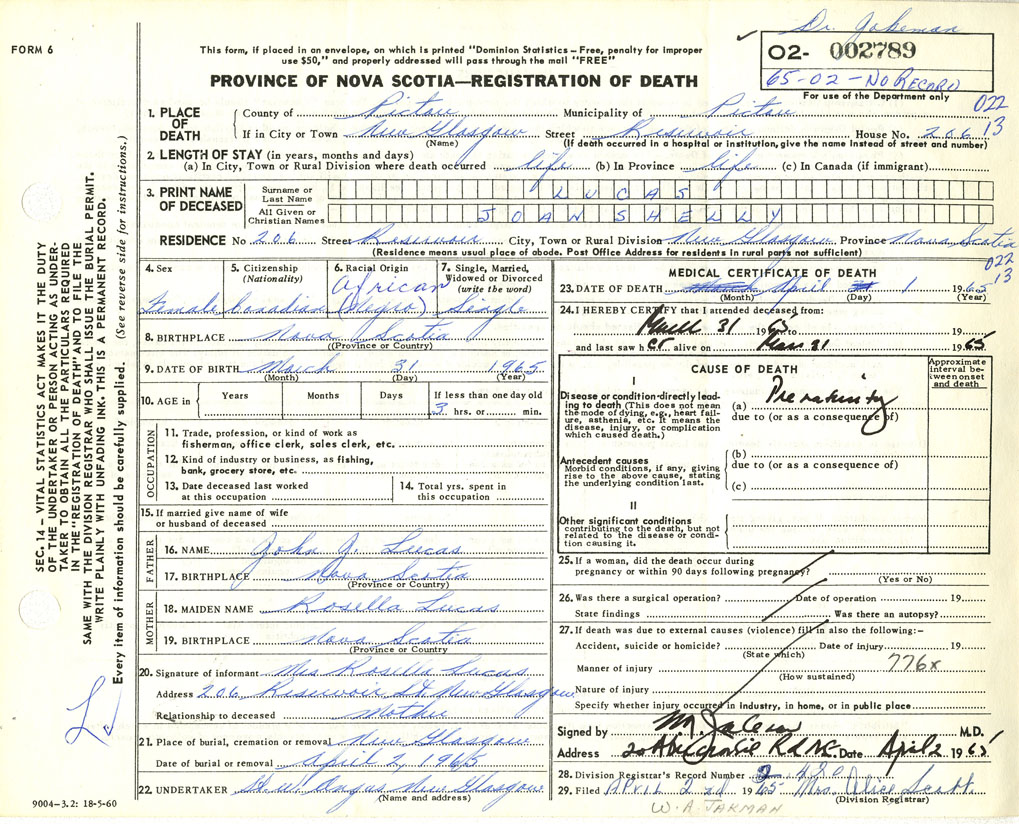 Dr. Jakeman
FORM 6
This form, if placed in an envelope, on which is printed "Dominion Statistics – Free, penalty for improper
use $50," and properly addressed will pass through the mail "FREE"
02- 002789
65-02 - NO RECORD
For use of the Department only
PROVINCE OF NOVA SCOTIA—REGISTRATION OF DEATH
022
13
1. PLACE OF DEATH
County of Pictou Municipality of Pictou
If in City or Town New Glasgow Street Riservoir House No. 206
(Name) (If death occurred in a hospital or institution, give the name instead of street and number)
2. LENGTH OF STAY (in years, months and days)
(a) In City, Town or Rural Division where death occurred life (b) In Province life (c) In Canada (if immigrant)
3. PRINT NAME OF DECEASED
Surname or Last Name LUCAS
All Given or Christian Names JOAN SHELLY
RESIDENCE No 206 Street Riservoir City, Town or Rural Division New Glasgow Province Nova Scotia
(Residence means usual place of abode. Post Office Address for residents in rural parts not sufficient)
022
13
4. Sex
Female
5. Citizenship
(Nationality)
Canadian
6. Racial Origin
African
(Negro)
7. Single, Married,
Widowed or Divorced
(write the word)
Single
8. BIRTHPLACE Nova Scotia
(Province or Country)
9. DATE OF BIRTH March 31 1965
(Month) (Day) (Year)
10. AGE in
Years
Months
Days
If less than one day old
3 hrs. or min.
OCCUPATION
11. Trade, profession, or kind of work as
fisherman, office clerk, sales clerk, etc.
12. Kind of industry or business, as fishing,
bank, grocery store, etc.
13. Date deceased last worked
at this occupation
14. Total yrs. spent in
this occupation
15. If married give name of wife
or husband of deceased
FATHER
16. NAME John J. Lucas
17. BIRTHPLACE Nova Scotia
(Province or Country)
MOTHER
18. MAIDEN NAME Rosella Lucas
19. BIRTHPLACE Nova Scotia
(Province or Country
20. Signature of informant Mrs Rosella Lucas
Address 206 Riservoir St New Glasgow
Relationship to deceased Mother
21. Place of burial, cremation or removal New Glasgow
Date of burial or removal April 2, 1965
22. UNDERTAKER Angus New Glasgow
(Name and address)
MEDICAL CERTIFICATE OF DEATH
23. DATE OF DEATH April 1 1965
(Month) (Day) (Year)
24. I HEREBY CERTIFY that I attended deceased from:
March 31 1965 to 19
and last saw her alive on Mar 31 1965
CAUSE OF DEATH
Approximate
interval be-
tween onset
and death
I
Disease or condition directly lead-
ing to death (This does not mean
the mode of dying, e.g., heart fail-
ure, asthenia, etc. It means the
disease, injury, or complication
which caused death.)
(a) Prematurity
due to (or as a consequence of)
Antecedent causes
Morbid conditions, if any, giving
rise to the above cause, stating
the underlying condition last.
(b)
due to (or as a consequence of)
(c)
II
Other significant conditions
contributing to the death, but not
related to the disease or condi-
tion causing it.
25. If a woman, did the death occur during
pregnancy or within 90 days following pregnancy?
(Yes or No)
26. Was there a surgical operation? Date of operation 19
State findings Was there an autopsy?
27. If death was due to external causes (violence) fill in also the following:–
Accident, suicide or homicide? Date of injury 19
(State which)
Manner of injury 776x
(How sustained)
Nature of injury
Specify whether injury occurred in industry, in home, or in public place
Signed by M.D.
Address Date April 2 1965
28. Division Registrar's Record Number 2 420
29. Filed April 2nd 1965 Mrs. Alice Scott
(Division Registrar)
W. A. JAKMAN
9004–3.2: 18-5-60
SEC. 14 – VITAL STATISTICS ACT MAKES IT THE DUTY
OF THE UNDERTAKER OR PERSON ACTING AS UNDER-
TAKER TO OBTAIN ALL THE PARTICULARS REQUIRED
IN THE "REGISTRATION OF DEATH" AND TO FILE THE
SAME WITH THE DIVISION REGISTRAR WHO SHALL ISSUE THE BURIAL PERMIT.
WRITE PLAINLY WITH UNFADING INK. THIS IS A PERMANENT RECORD.
Every item of information should be carefully supplied. (See reverse side for instructions.)
L